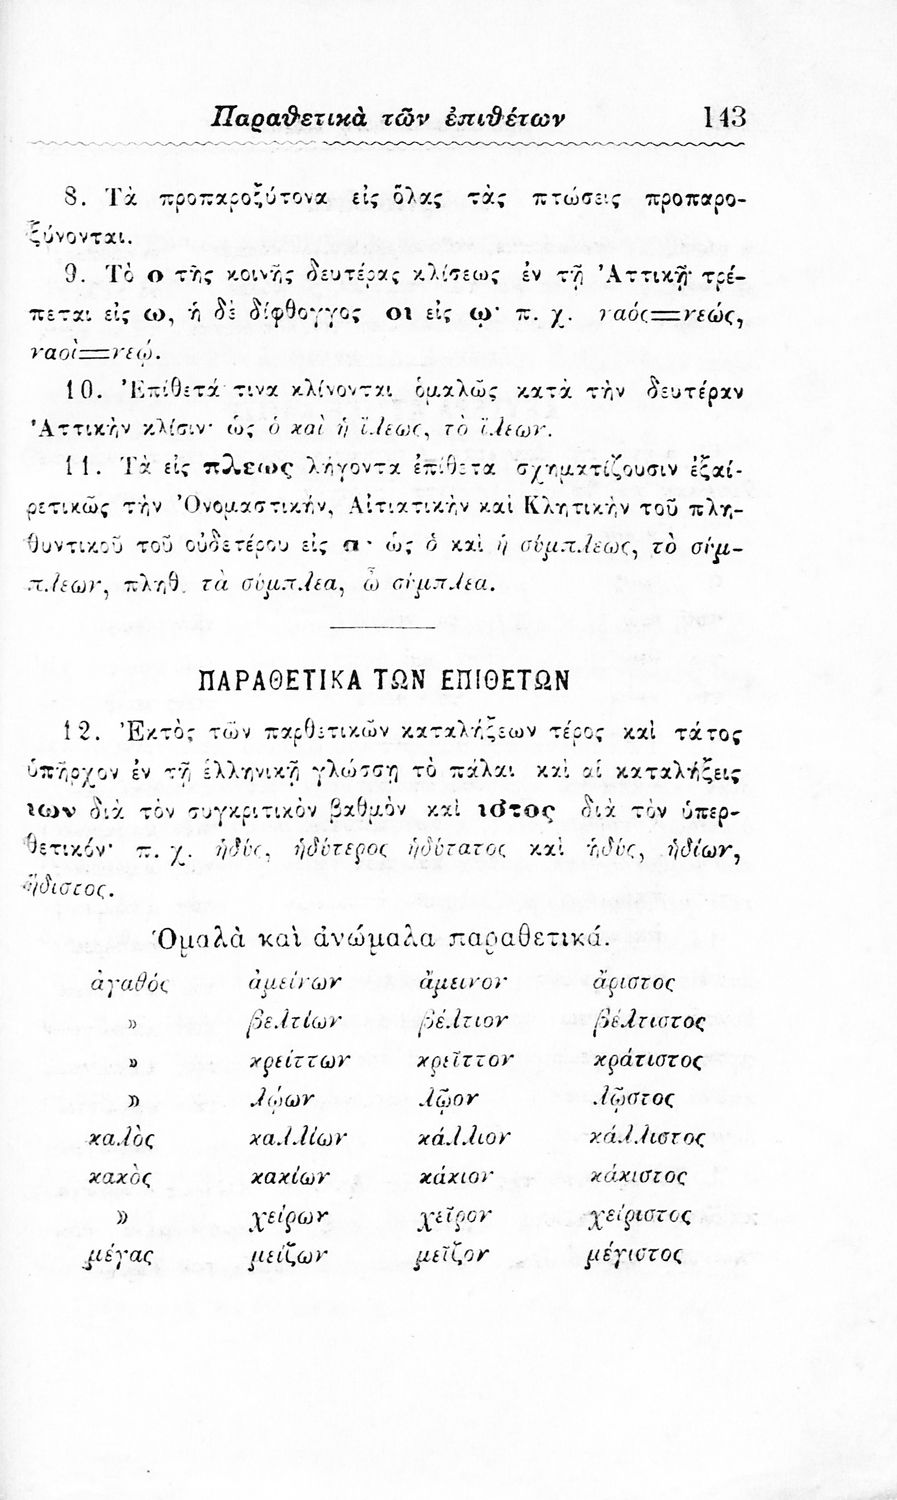 Παραθετικὰ τῶν ἐπιθέτων 143
8. Τὰ προπαροξύτονα εἰς ὅλας τὰς πτώσεις προπαρο-
ξύνονται.
9. Τὸ ο τῆς κοινῆς δευτέρας κλίσεως ἐν τῇ Ἀττικῇ τρέ-
πεται εἰς ω, ἡ δὲ δίφθογγος οι εἰς ῳ· π. χ. ναός=νεώς,
ναοὶ=νεῴ.
10. Ἐπίθετά τινα κλίνονται ὁμαλῶς κατὰ τὴν δευτέραν
Ἀττικὴν κλίσιν· ὡς ὁ καὶ ἡ ἵλεως, τὸ ἵλεων.
11. Τὰ εἰς πλεως λήγοντα ἐπίθετα σχηματίζουσιν ἐξαί-
ρετικῶς τὴν Ὀνομαστικήν, Αἰτιατικὴν καὶ Κλητικὴν τοῦ πλη-
θυντικοῦ τοῦ οὐδετέρου εἰς α· ὡς ὁ καὶ ἡ σύμπλεως, τὸ σύμ-
πλεων, πληθ. τὰ σύμπλεα, ὦ σύμπλεα.
ΠΑΡΑΘΕΤΙΚΑ ΤΩΝ ΕΠΙΘΕΤΩΝ
12. Ἐκτὸς τῶν παρθετικῶν καταλήξεων τέρος καὶ τάτος
ὑπῆρχον ἐν τῇ ἑλληνικῇ γλώσσῃ τὸ πάλαι καὶ αἱ καταλήξεις
ιων διὰ τὸν συγκριτικὸν βαθμὸν καὶ ιστος διὰ τὸν ὑπερ-
θετικόν· π. χ. ἡδύς, ἡδύτερος ἡδύτατος καὶ ἡδύς, ἡδίων,
ἥδιστος.
Ὁμαλὰ καὶ ἀνώμαλα παραθετικά.
ἀγαθός ἀμείνων ἄμεινον ἄριστος
» βελτίων βέλτιον βέλτιστος
» κρείττων κρεῖττον κράτιστος
» λῴων λῷον λῷστος
καλὸς καλλίων κάλλιον κάλλιστος
κακὸς κακίων κάκιον κάκιστος
» χείρων χεῖρον χείριστος
μέγας μείζων μεῖζον μέγιστος